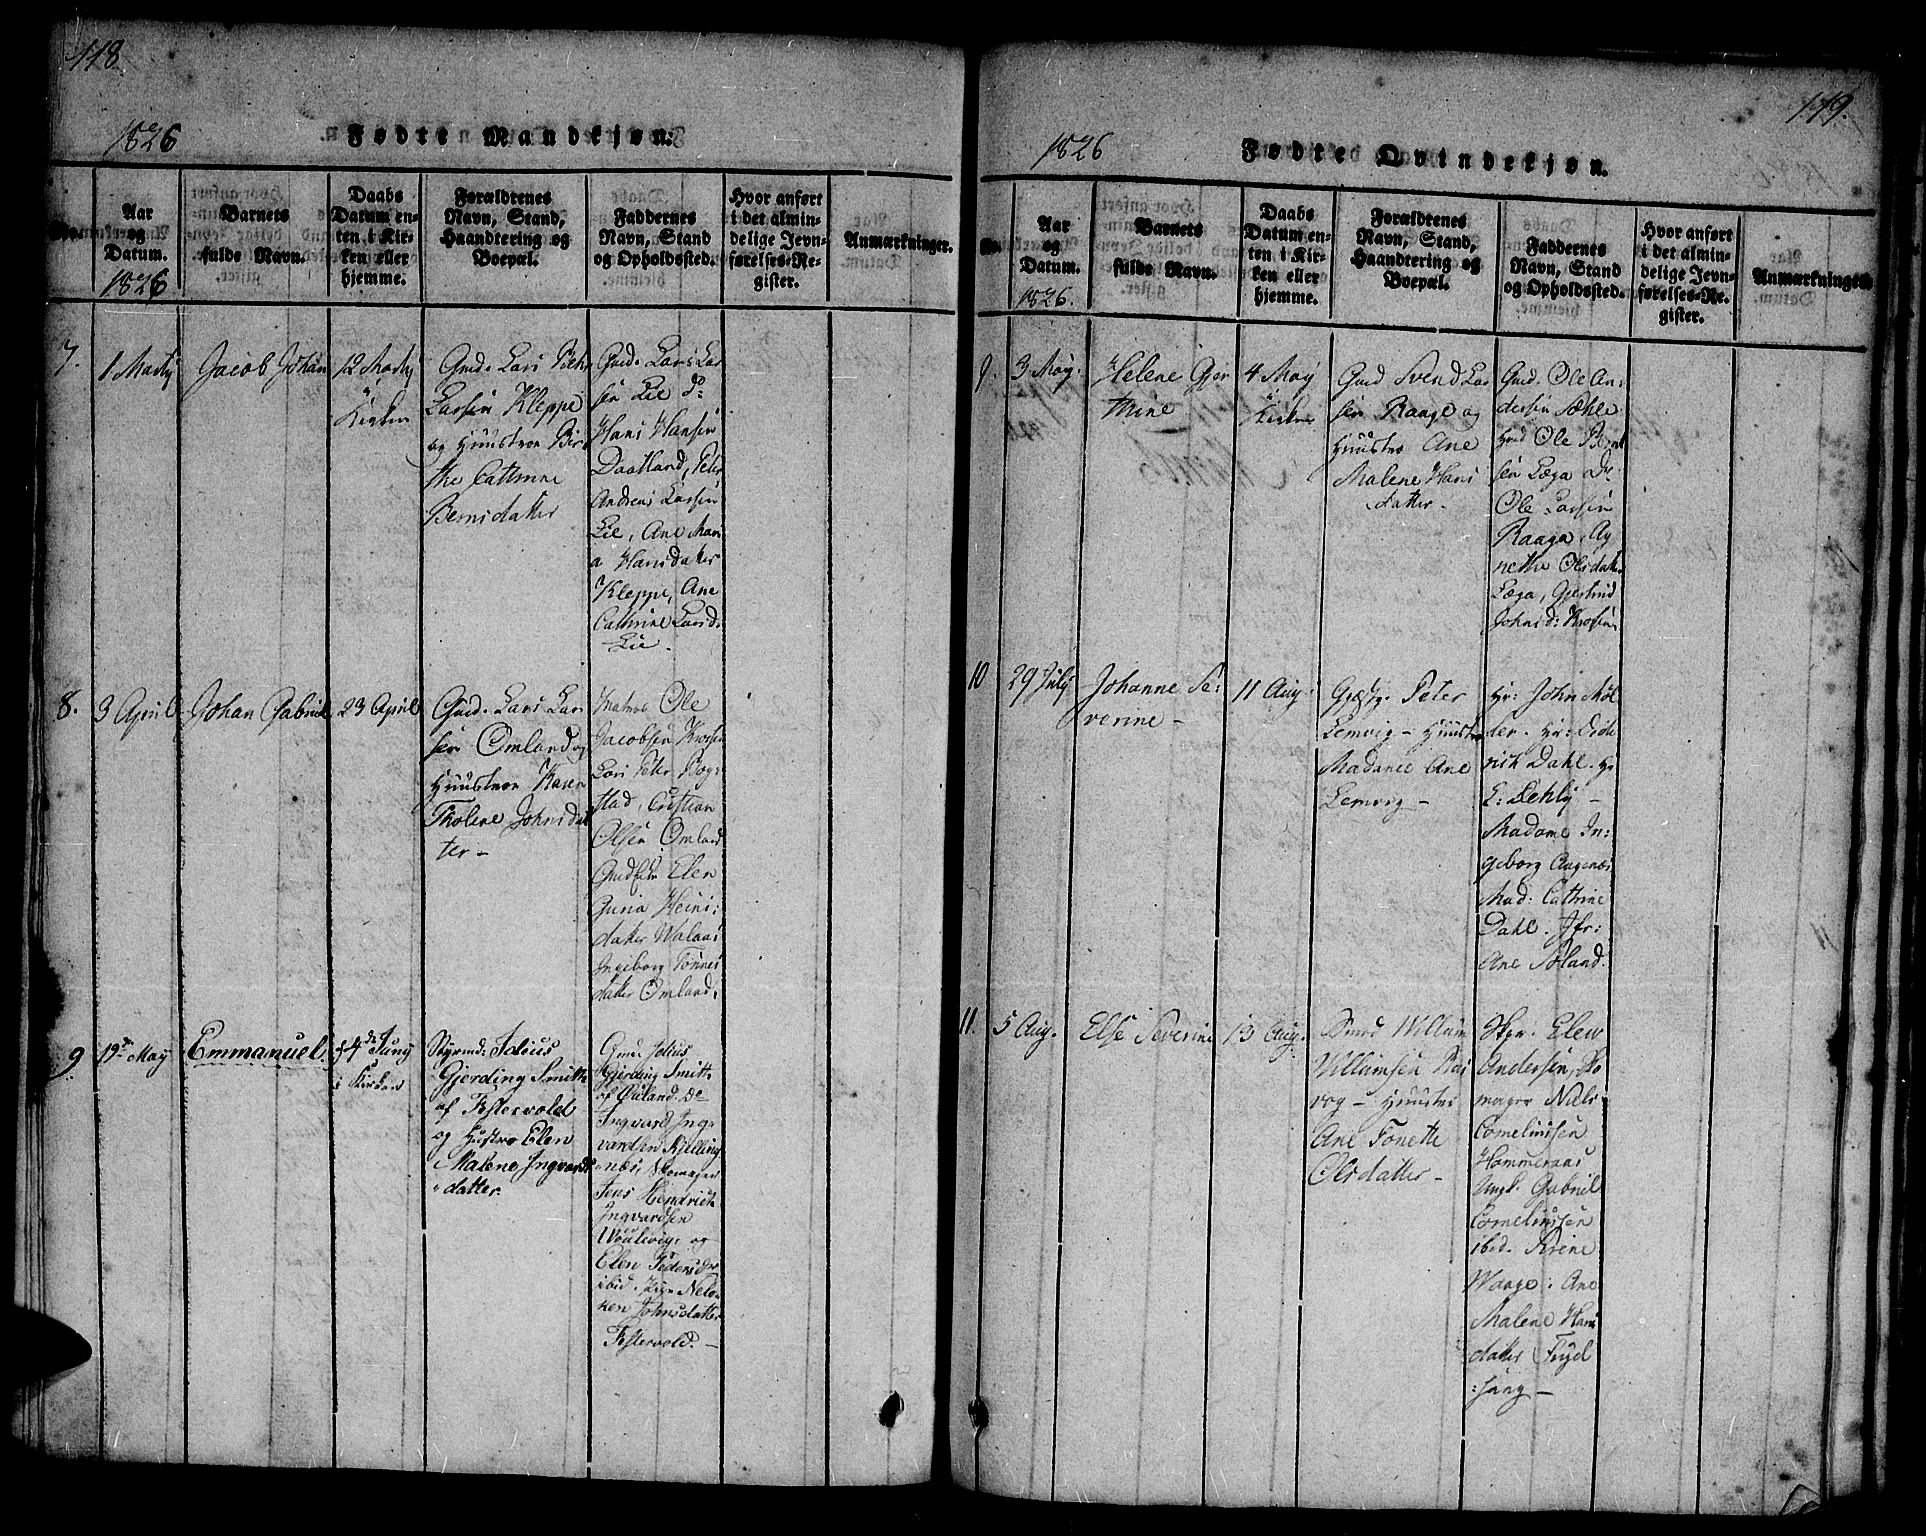 118.
1826
Fødte Mandkjøn.
Aar
og
Datum.
1826
Barnets
fulde Navn.
Daabs
Datum en-
ten i Kir-
ken eller
hjemme.
Forældrenes
Navn, Stand,
Haandtering og
Boepæl.
Faddernes
Navn, Stand
og Opholdssted.
Hvor anført
i det almin-
delige Jevn-
førelses-Re-
gister.
Anmærkninger.
7.
1 Marty
Jacob Johan
12 Marty
Kirken
Gmd. Lars
Larsen Kleppe
og Huustroe Bir
the Cathrine
Berntsdatter
Gmd. Lars Lar
sen Lie do
Hans Hansen
Daatland, Peter
Andreas Larsen
Lie, Ane Mari
a Hansdatter
Kleppe, Ane
Cathrine Larsd.
Lie.
8.
3 April
Johan Gabriel
23 April
Gmd. Lars Lar
sen Omland og
Huustroe Karen
Tholene Johnsdat
ter -
Matros Ole
Jacobsen
Lars Peter Bog
stad, Cristian
Olsen Omland
Elen
Heins:
datter
Ingeborg Tønnes
datter Omland.
9
19de May
Emmanuel
4de Juny
i Kirken
Styrmd: Tobius
Gjerding Smith
af Festervold
og Hustro Elen
Malene Ingvards
datter.
Gmd. Tobius
Gjerding Smith
af Øuland. Do
Ingvard Ing
vardsen Kjelling
næs,
Jens Hendrich
Ingvardsen
og
Elen Pedersdtr
ibid. Pige
ken Johnsdatter
Festervold. -
119.
1826
Fødte Qvindekjøn.
Aar
og
Datum.
1826.
Barnets
fulde Navn.
Daabs
Datum en-
ten i Kir-
ken eller
hjemme.
Forældrenes
Navn, Stand,
Haandtering og
Boepæl.
Faddernes
Navn, Stand
og Opholdssted.
Hvor anført
i det almin-
delige Jevn-
førelses-Re-
gister.
Anmærkninger.
9.
3 May.
Helene Gjer
thine
4 May
Kirken
Gmd Svend Lar
sen Raage og
Huustro Ane
Malene Hans
datter.
Gmd. Ole An:
dersen Sæhle
Gmd Ole Bernt
sen Læga Do
Ole Larsen
Raage, Ag
nethe Olsdatter
Læga, Gjertrud
Johnsd:
10
29 July
Johanne Se:
verine -
11 Aug.
Peter
Lemvig - Huustro
Madame Ane
Lemvig -
Hr: John Møl
ler. Hr: Dide
rich Dahl. Hr
E: Dehly -
Madame In:
geborg Augenæs
Mad: Cathrine
Dahl. Jfr:
Ane Søland.
11.
5 Aug.
Else Severine
13 Aug.
Smed Willum
Willumsen Ras
vog - Huustro
Ane Tonette
Olsdatter -
Elew
Andersen, Sko
mager Niels
Corneliussen
Hammeraas
Ungk. Gabriel
Corneliussen
ibd. Sirene
Waage. Ane
Malene Hans
datter Fuyel
:sang -